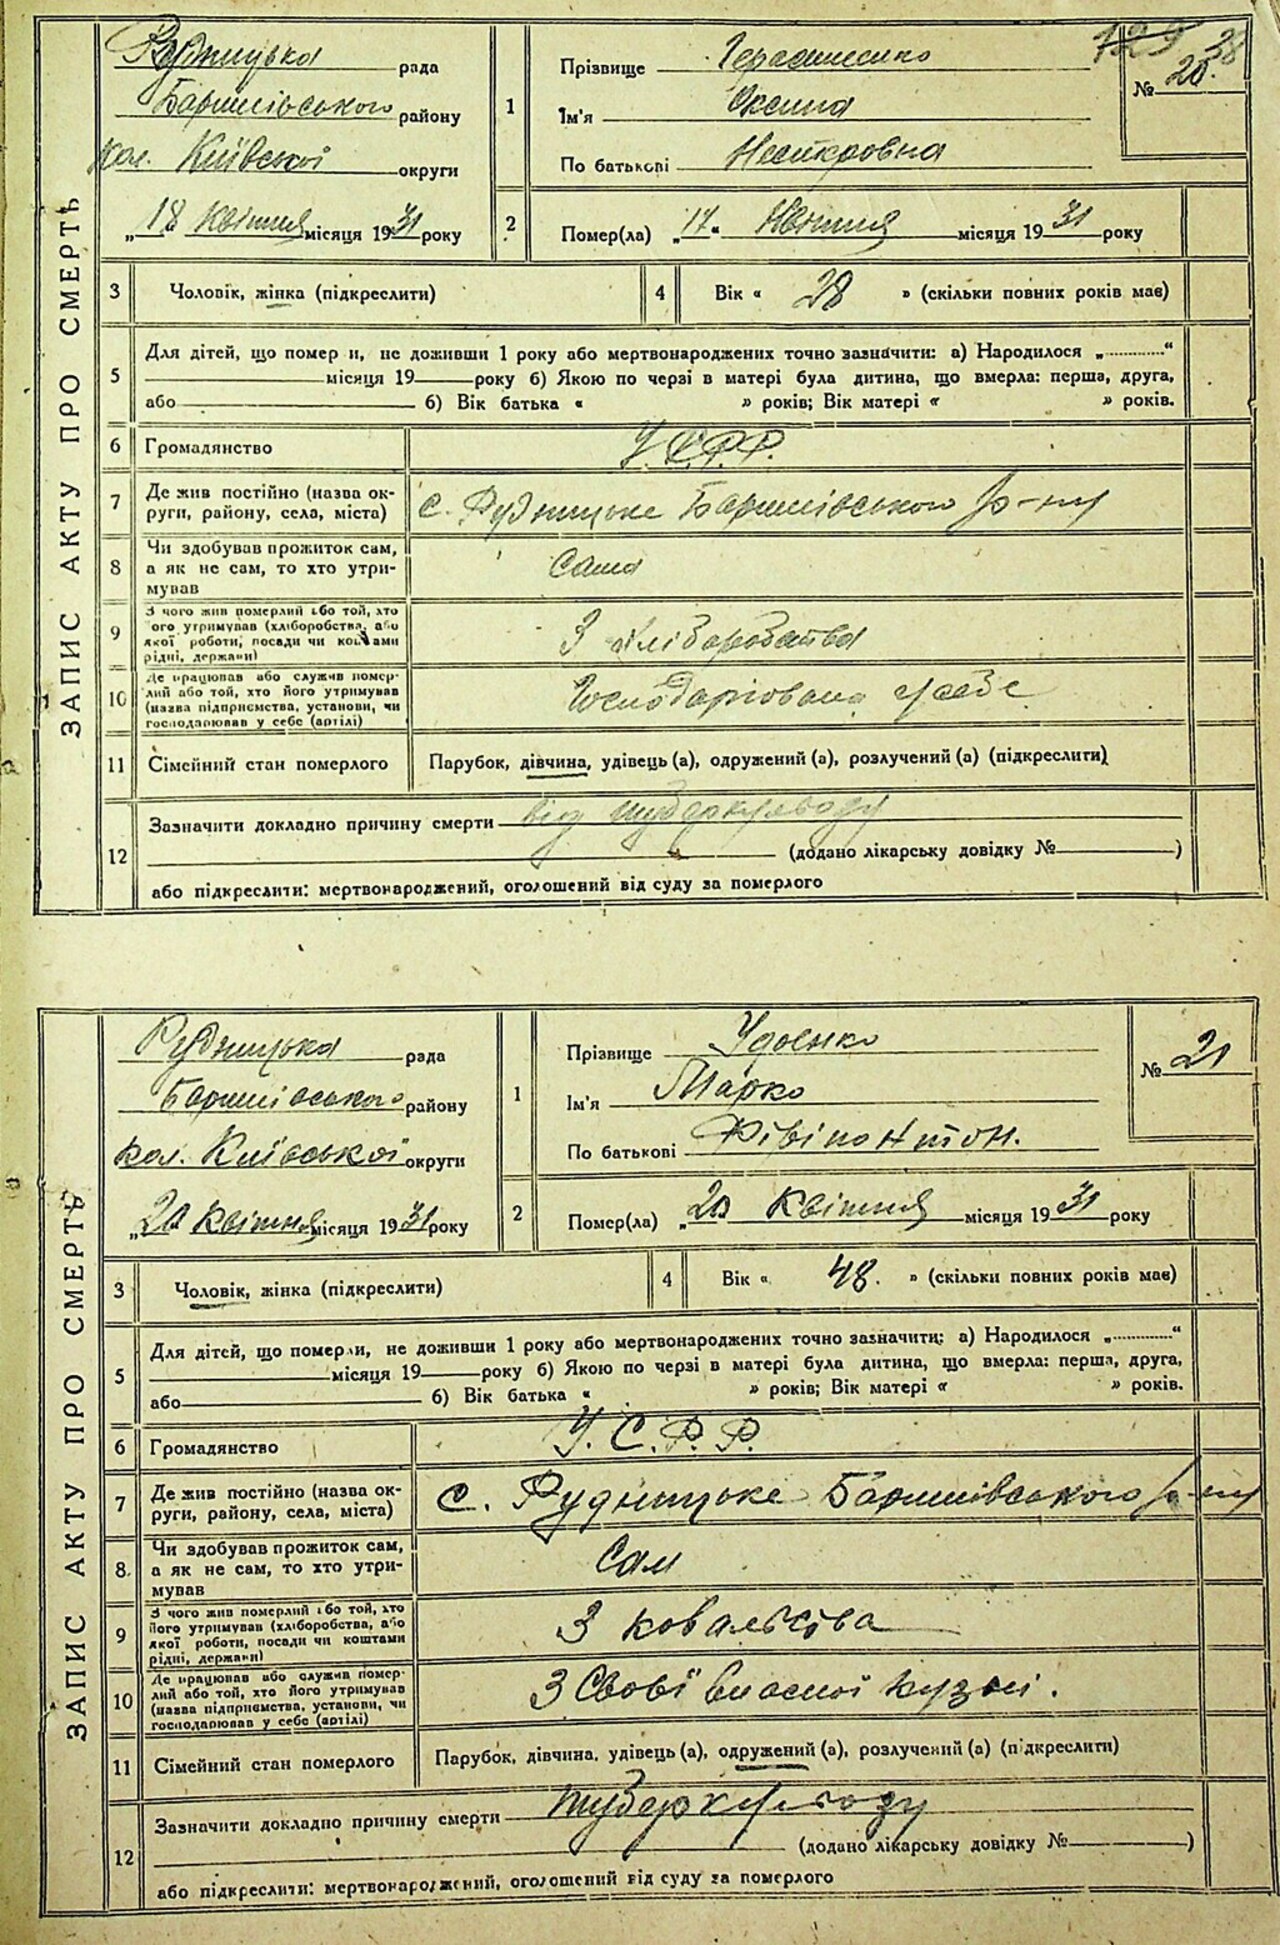 ЗАПИС АКТУ ПРО СМЕРТЬ
129 38
Рудницька рада
Баришівського району
кол. Київської округи
„18 квітня місяця 1931 року
1
Прізвище Герасименко
Ім'я Оксана
По батькові
№ 20.
2
Помер(ла) „17“ квітня місяця 1931 року
3 Чоловік, жінка (підкреслити)
4 Вік « 28 » (скільки повних років має)
5 Для дітей, що помер и, не доживши 1 року або мертвонароджених точно зазначити: а) Народилося „ “
місяця 19 року б) Якою по черзі в матері була дитина, що вмерла: перша, друга,
або б) Вік батька « » років; Вік матері « » років.
6 Громадянство У.С.Р.Р.
7 Де жив постійно (назва ок-
руги, району, села, міста) с. Рудницьке Баришівського р-ну
8 Чи здобував прожиток сам,
а як не сам, то хто утри-
мував сама
9 З чого жив померлий або той, хто
ого утримував (хліборобства, або
якої роботи, посади чи коштами
рідні, держави) З хліборобства
10 Де працював або служив помер-
лий або той, хто його утримував
(назва підприємства, установи, чи
господарював у себе (артілі) Господарювала у себе
11 Сімейний стан померлого Парубок, дівчина, удівець (а), одружений (а), розлучений (а) (підкреслити)
12 Зазначити докладно причину смерти від туберкульозу
(додано лікарську довідку № )
або підкреслити: мертвонароджений, оголошений від суду за померлого
ЗАПИС АКТУ ПРО СМЕРТЬ
Рудницька рада
Баришівського району
кол. Київської округи
„20 квітня місяця 1931 року
1
Прізвище Удоєнко
Ім'я Марко
По батькові
№ 21
2
Помер(ла) „20 квітня місяця 1931 року
3 Чоловік, жінка (підкреслити)
4 Вік « 48. » (скільки повних років має)
5 Для дітей, що померли, не доживши 1 року або мертвонароджених точно зазначити: а) Народилося „ “
місяця 19 року б) Якою по черзі в матері була дитина, що вмерла: перша, друга,
або б) Вік батька « » років; Вік матері « » років.
6 Громадянство У.С.Р.Р.
7 Де жив постійно (назва ок-
руги, району, села, міста) с. Рудницьке Баришівського р-ну
8. Чи здобував прожиток сам,
а як не сам, то хто утри-
мував Сам
9 З чого жив померлий або той, хто
його утримував (хліборобства, або
якої роботи, посади чи коштами
рідні, держави) З ковальства
10 Де працював або служив помер-
лий або той, хто його утримував
(назва підприємства, установи, чи
господарював у себе (артілі) З Свої власної кузні.
11 Сімейний стан померлого Парубок, дівчина, удівець (а), одружений (а), розлучений (а) (підкреслити)
12 Зазначити докладно причину смерти туберкульозу
(додано лікарську довідку № )
або підкреслити: мертвонароджений, оголошений від суду за померлого